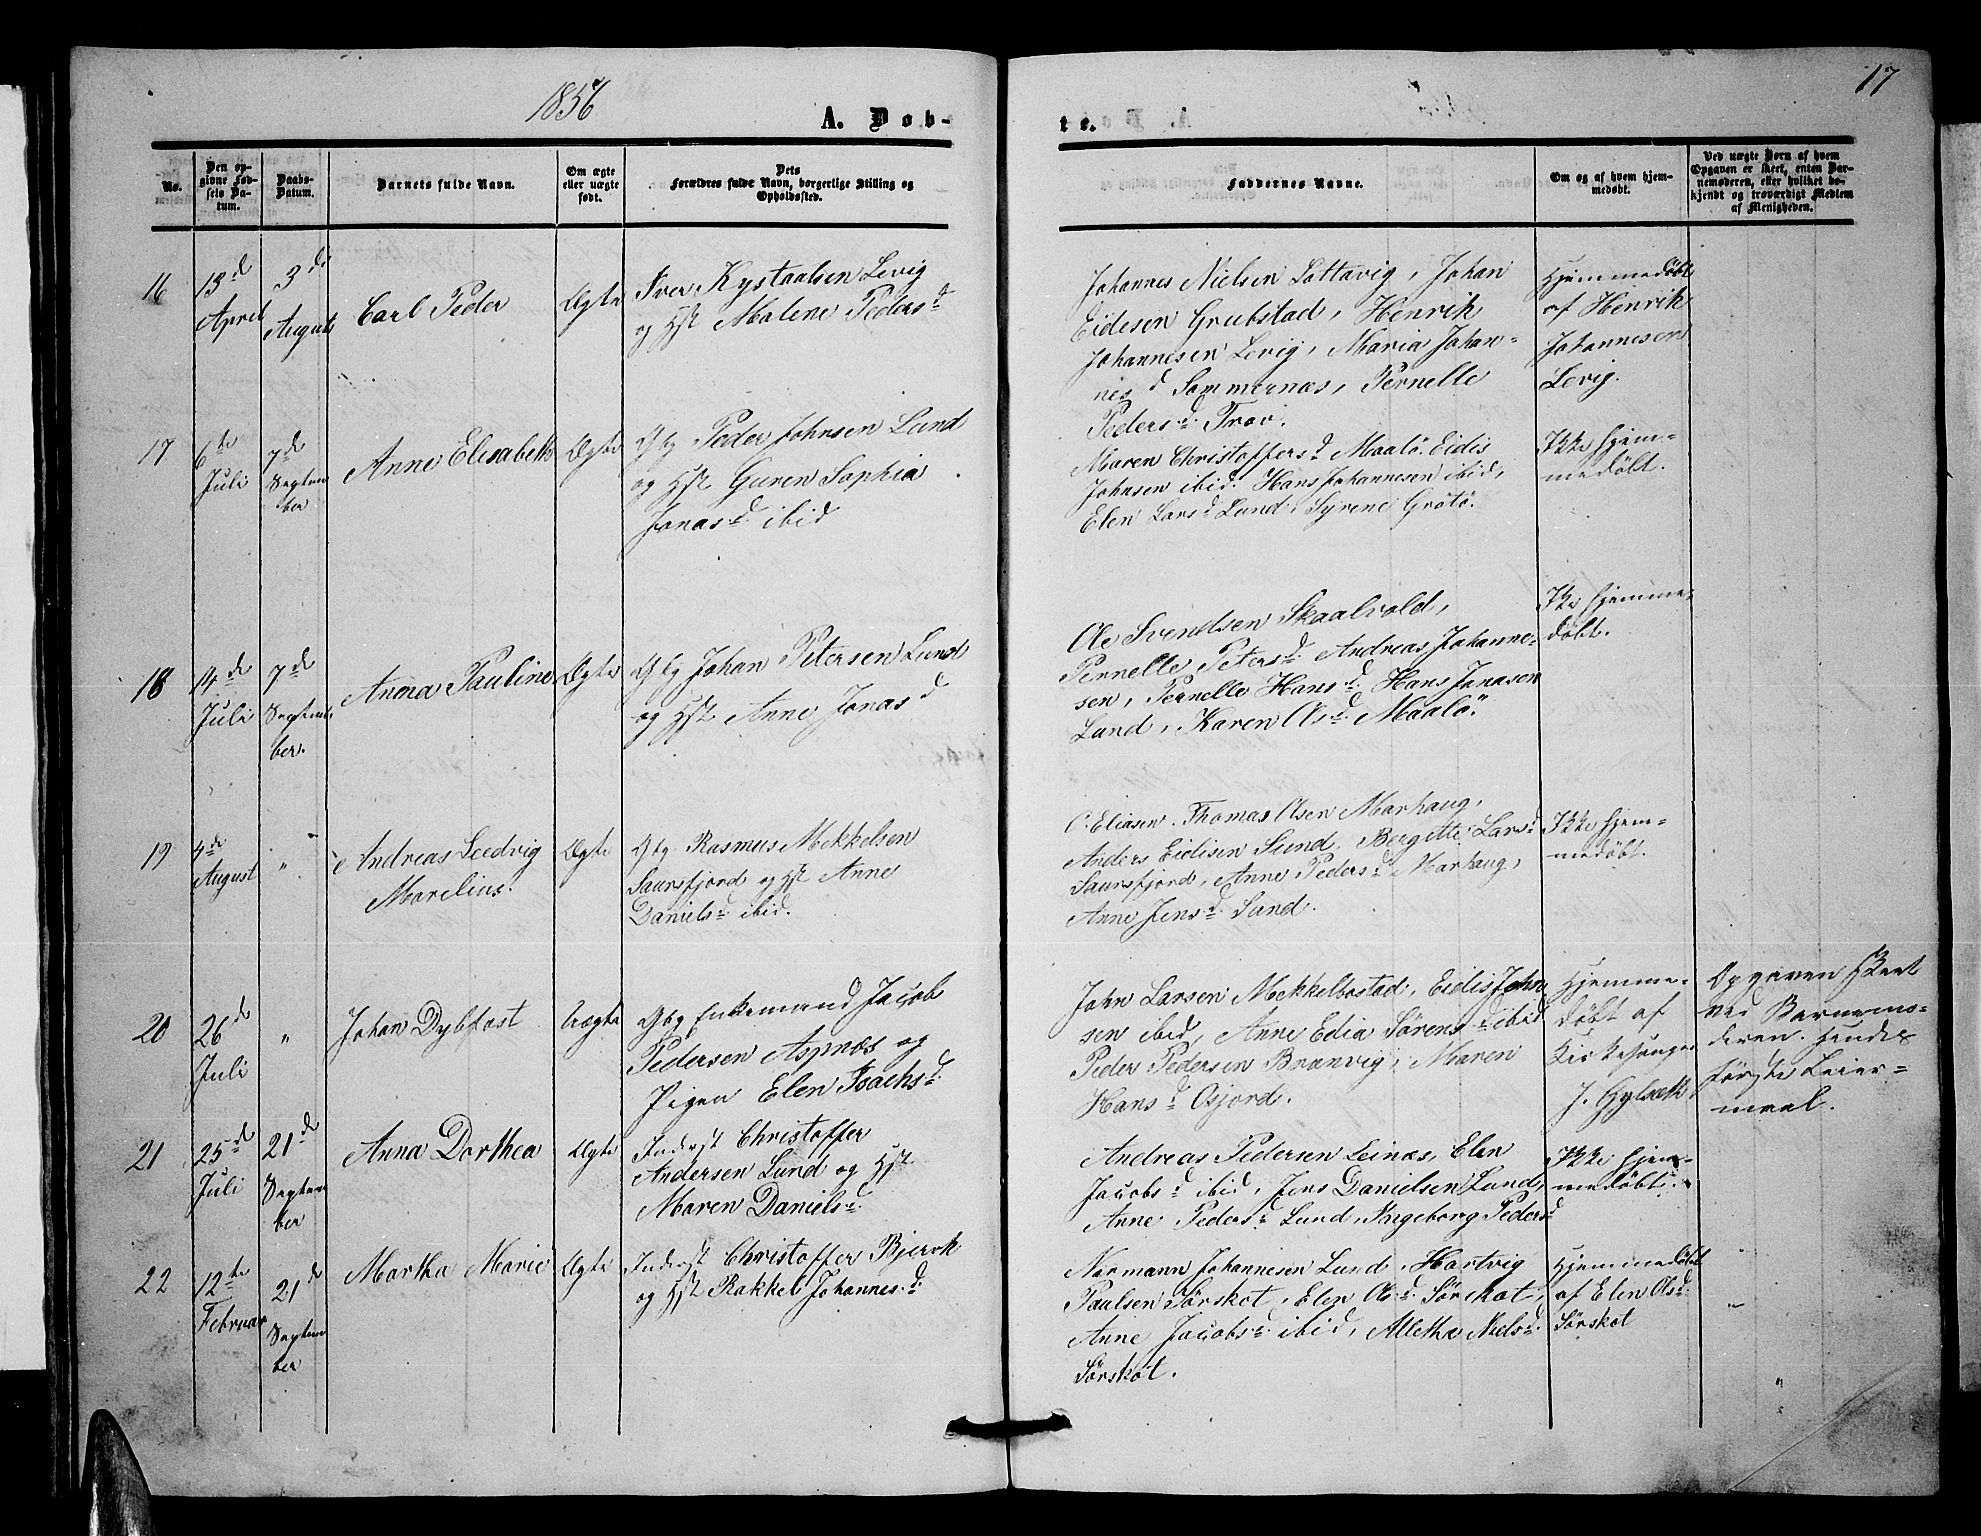 1856
17
A. Døb-
te.
No.
Den op-
givne Fød-
sels Da-
tum.
Daabs-
Datum.
Barnets fulde Navn.
Om ægte
eller uægte
født.
Dets
Forældres fulde Navn, borgerlige Stilling og
Opholdssted.
Faddernes Navne.
Om og af hvem hjem-
medøbt.
Ved uægte Børn af hvem
Opgaven er skeet, enten Bar-
nemoderen, eller hvilket be-
kjendt og troværdigt Medlem
af Menigheden.
16
13de
April
3die
August
Carl Peder
Ægte
Iver Kystaalsen Levig
og Hst Malene Pedersd
Johannes Nielsen Lottavig, Johan
Eidesen Grubstad, Henrik
Johannesen Levig, Maria Johan-
nesd Sommernæs, Pernelle
Pedersd. Trøv.
Hjemmedøbt
af Henrik
Johannesen
Levig.
17
6te
Juli
7de
Septem
ber
Anne Elisabeth
Ægte
Gbg Peder Johnsen Lund
og Hst Guren Sophia
Jonasd. ibid
Maren Christoffersd Maalö. Eidis
Johnsen ibid. Hans Johannesen ibid,
Elen Larsd Lund, Syrene Grötö.
Ikke hjem-
medöbt.
18
14de
Juli
7de
Septem
ber.
Anna Pauline
Ægte
Gbg Johan Petersen Lund
og Hst. Anne Jonasd
Ole Svendsen Skaalvold,
Pernelle Petersd. Andreas Johanne-
sen, Pernelle Hansd. Hans Jonasen
Lund, Karen Olsd. Maalö.
Ikke hjemme-
döbt.
19
4de
August
"
Andreas Ludvig
Marelius.
Ægte
Gbg. Rasmus Mekkelsen
Saursfjord og Hst Anne
Danielsd. ibid.
O. Eliasen. Thomas Olsen Marhaug,
Anders Eidisen Sund. Bergitte Larsd
Saursfjord, Anne Pedersd. Marhaug,
Anne Jensd. Sund.
Ikke hjem-
medøbt.
20
26de
Juli
"
Johan Dybfast
Uægte
Gbg Enkemand Jacob
Pedersen Aspnæs og
Pigen Elen Isachsd.
John Larsen Mekkelbostad, Eidis John
sen ibid, Anne Edia Sörensd ibid
Peder Pedersen Brænvig, Maren
Hansd Osjord.
Hjemme-
döbt af
Kirkesanger
J. Gylseth
Opgaven skeet
ved Barnemo-
deren. Hendes
første Leier-
maal.
21
25de
Juli
21de
Septem
ber
Anna Dorthea
Ægte
Inderst Christoffer
Andersen Lund og Hst
Maren Danielsd.
Andreas Pedersen Leinæs, Elen
Jacobsd ibid, Jens Danielsen Lund,
Anne Pedersd. Lund, Ingeborg Pedersd
Ikke hjem-
medøbt.
22
12te
Februar
21de
Septem
ber
Martha Marie
Ægte
Inderst Christoffer Bjerok
og Hst Rakkel Johannesd.
Normann Johannesen Lund, Hartvig
Paulsen Sörskot, Elen Olsd. Sörskot,
Anne Jacobsd. ibid, Alletha Nielsd.
Sörskot.
Hjemmedöbt
af Elen Olsd.
Sörskot
"